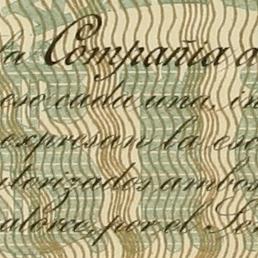 la Compañia a
eso cada una, in
expresan la esc
utorizados ambos
atorce, por el Se